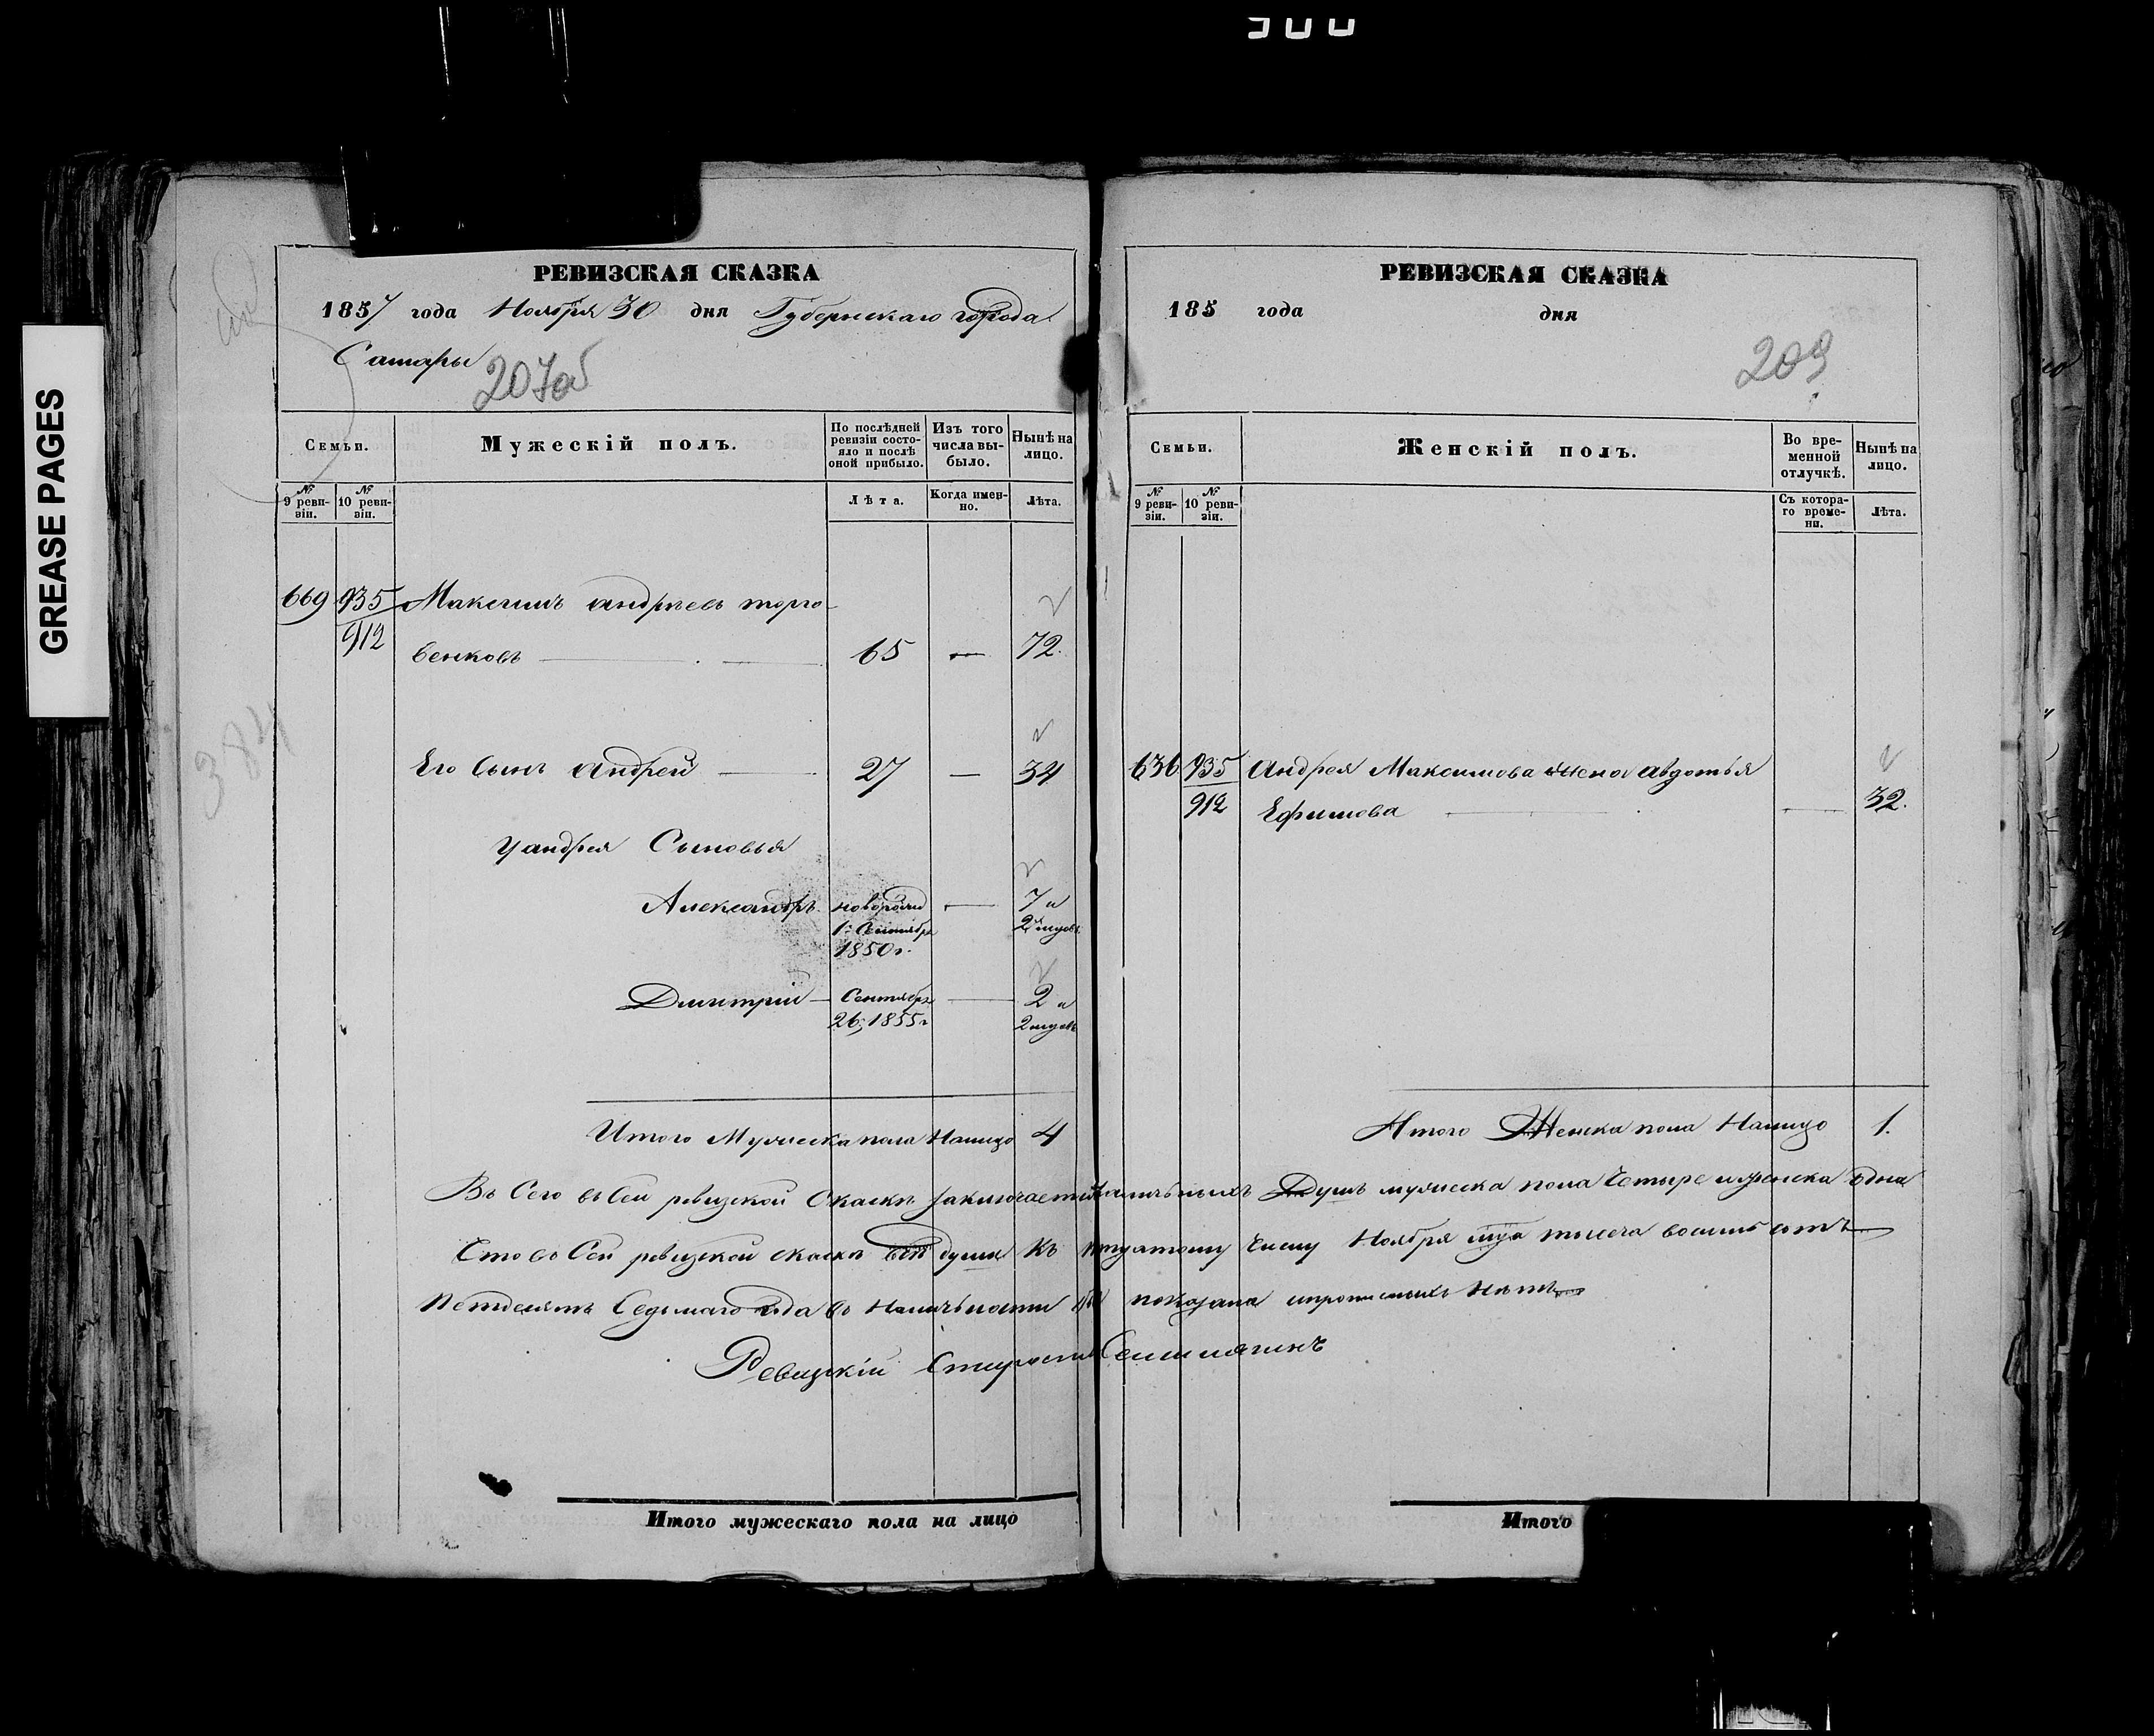 300
GREASE PAGES
РЕВИЗСКАЯ СКАЗКА
1857 года Ноября 30 дня Губернскаго города
Самары
207об
Семьи.
Мужескій полъ.
По послѣдней ревизіи состояло и послѣ оной прибыло.
Изъ того числа выбыло.
Нынѣ на лицо.
№ 9 ревизіи.
№ 10 ревизіи.
Лѣта.
Когда именно.
Лѣта.
669 935/912 Максимъ андреевъ торго-
венковъ 65 — 72.
Его Сынъ андрей — 27 — 34
У андрея Сыновья
Александръ новорожд — 7 и
1. Сентября 2 месуов
1850 г.
Дмитрій — Сентября — 2 и
26, 1855 г
384
Итого Мужеска пола Налицо 4
Итого мужескаго пола на лицо
РЕВИЗСКАЯ СКАЗКА
185 года дня
209
Семьи.
Женскій полъ.
Во временной отлучкѣ.
Нынѣ на лицо.
№ 9 ревизіи.
№ 10 ревизіи.
Съ котораго времени.
Лѣта.
636 935/912 Андрея Максимова жена авдотья
Ефимова — 32.
Итого Женска пола Налицо 1.
Въ Сей ревизской Скаскѣ заключается наличныхъ Душъ мужеска пола Четыре и женска одна
Что въ Сей ревизской скаскѣ всѣ души къ Числу Ноября тысеча восимь сотъ
Петдесятъ Седьмаго года въ Наличьности показана и прописныхъ Нѣтъ
Ревизкій Староста
Итого